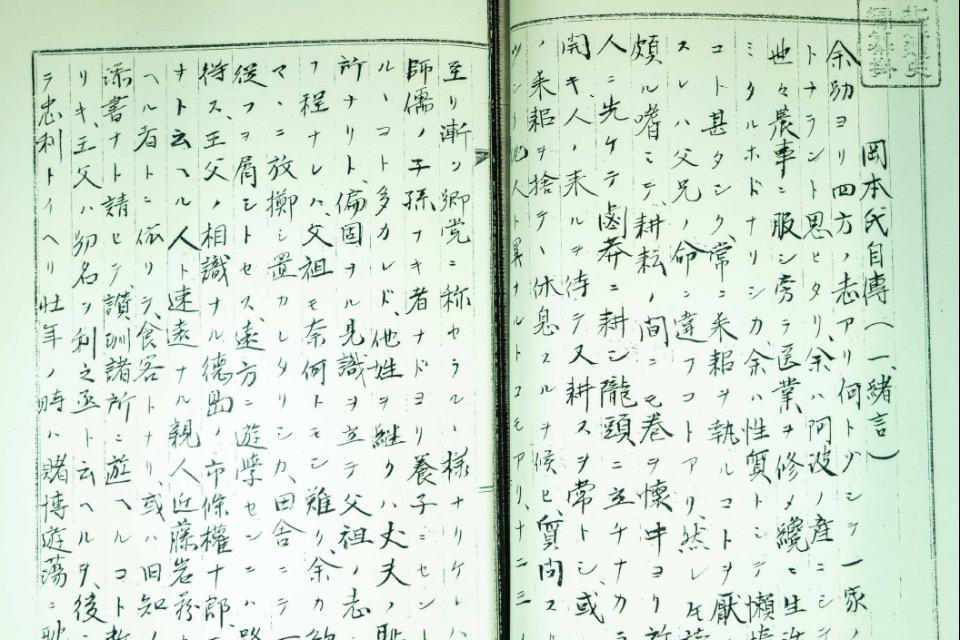 北海道史
編纂掛
岡本氏自傳(一、緒言)
余幼ヨリ四方ノ志アリ何トゾシテ一家
トナラント思ヒタリ、余ハ阿波ノ産ニシ
世々農事ニ服シ旁ラ医業ヲ修メ纔ニ生
ミタルホドナリシカ、余ハ性質トシテ懶
コト甚タシク、常ニ耒耜ヲ執ルコトヲ厭
スレハ父兄ノ命ニ違フコトアリ、然レ
頗ル嗜ミテ、耕耘ノ間ニモ巻ヲ懐中ヨリ
人ニ先ケテ鹵莽ニ耕シ隴頭ニ立チナカ
開キ、人ノ来ルヲ待テ又耕スヲ常トシ、或
ノ耒耜ヲ捨テヽ休息スルヲ候ヒ、質問ス
他人ト異ナルトコモアリ、十二三
至リ漸ク郷党ニ称セラルヽ様ナリケレハ
師儒ノ子孫ナキ者ナドヨリ養子ニセン
ルヽコト多カレド、他姓ヲ継クハ丈夫ノ恥
許ナリト、偏固ナル見識ヲ立テ父祖ノ志
フ程ナレハ、父祖モ奈何トモシ難リ、余カ
マヽニ放擲シ置カレタリシカ、田舎ニテ
従フヲ屑シトセス、遠方ニ遊学センニハ路
待ス、王父ノ相識ナル徳島ノ市條權十郎
ヲト云ヘル人ト速遠ナル親人近藤岩
ヘル者トニ依リテ、食客トナリ、或ハ旧知
添書ナト請ヒテ讃訓諸所ニ遊ヘルコト
リキ、王父ハ幼名ヲ利之丞ト云ヘルヲ、後
ラ忠利トイヘリ壮年ノ時ハ賭博遊蕩ニ耽